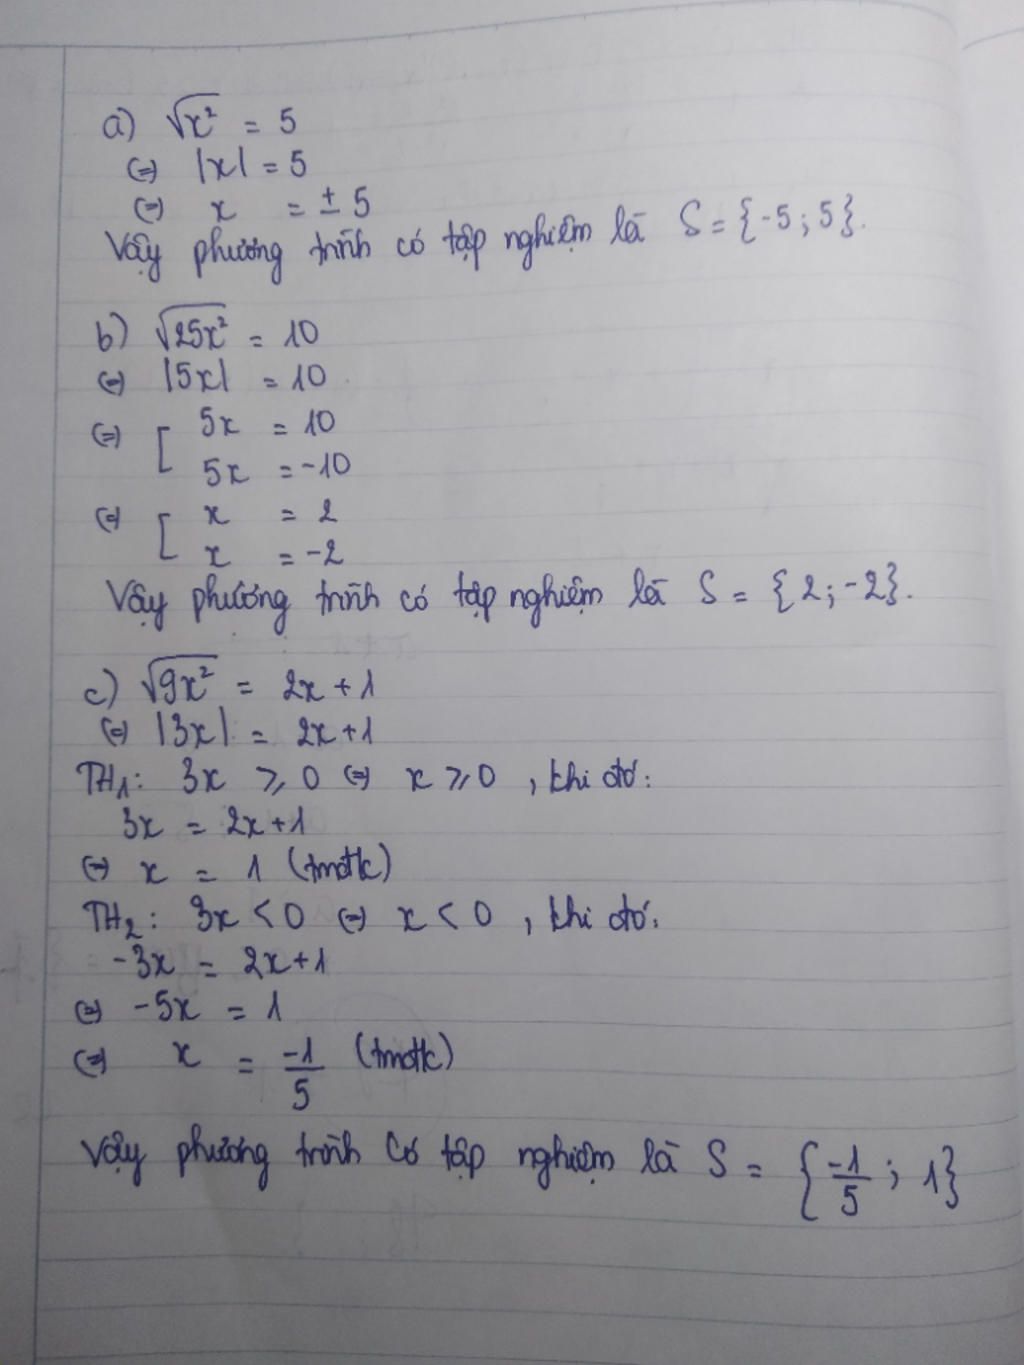 a) √x² = 5
(=) |x| = 5
(=) x = ± 5
Vậy phương trình có tập nghiệm là S = {-5; 5}.
b) √25x² = 10
(=) |5x| = 10
(=) [ 5x = 10
5x = -10
(=) [ x = 2
x = -2
Vậy phương trình có tập nghiệm là S = {2; -2}.
c) √9x² = 2x + 1
(=) |3x| = 2x+1
TH₁: 3x ⩾ 0 (=) x ⩾ 0, khi đó:
3x = 2x+1
(=) x = 1 (tmđk)
TH₂: 3x < 0 (=) x < 0, khi đó:
-3x = 2x+1
(=) -5x = 1
(=) x = -1/5 (tmđk)
Vậy phương trình có tập nghiệm là S = {-1/5; 1}